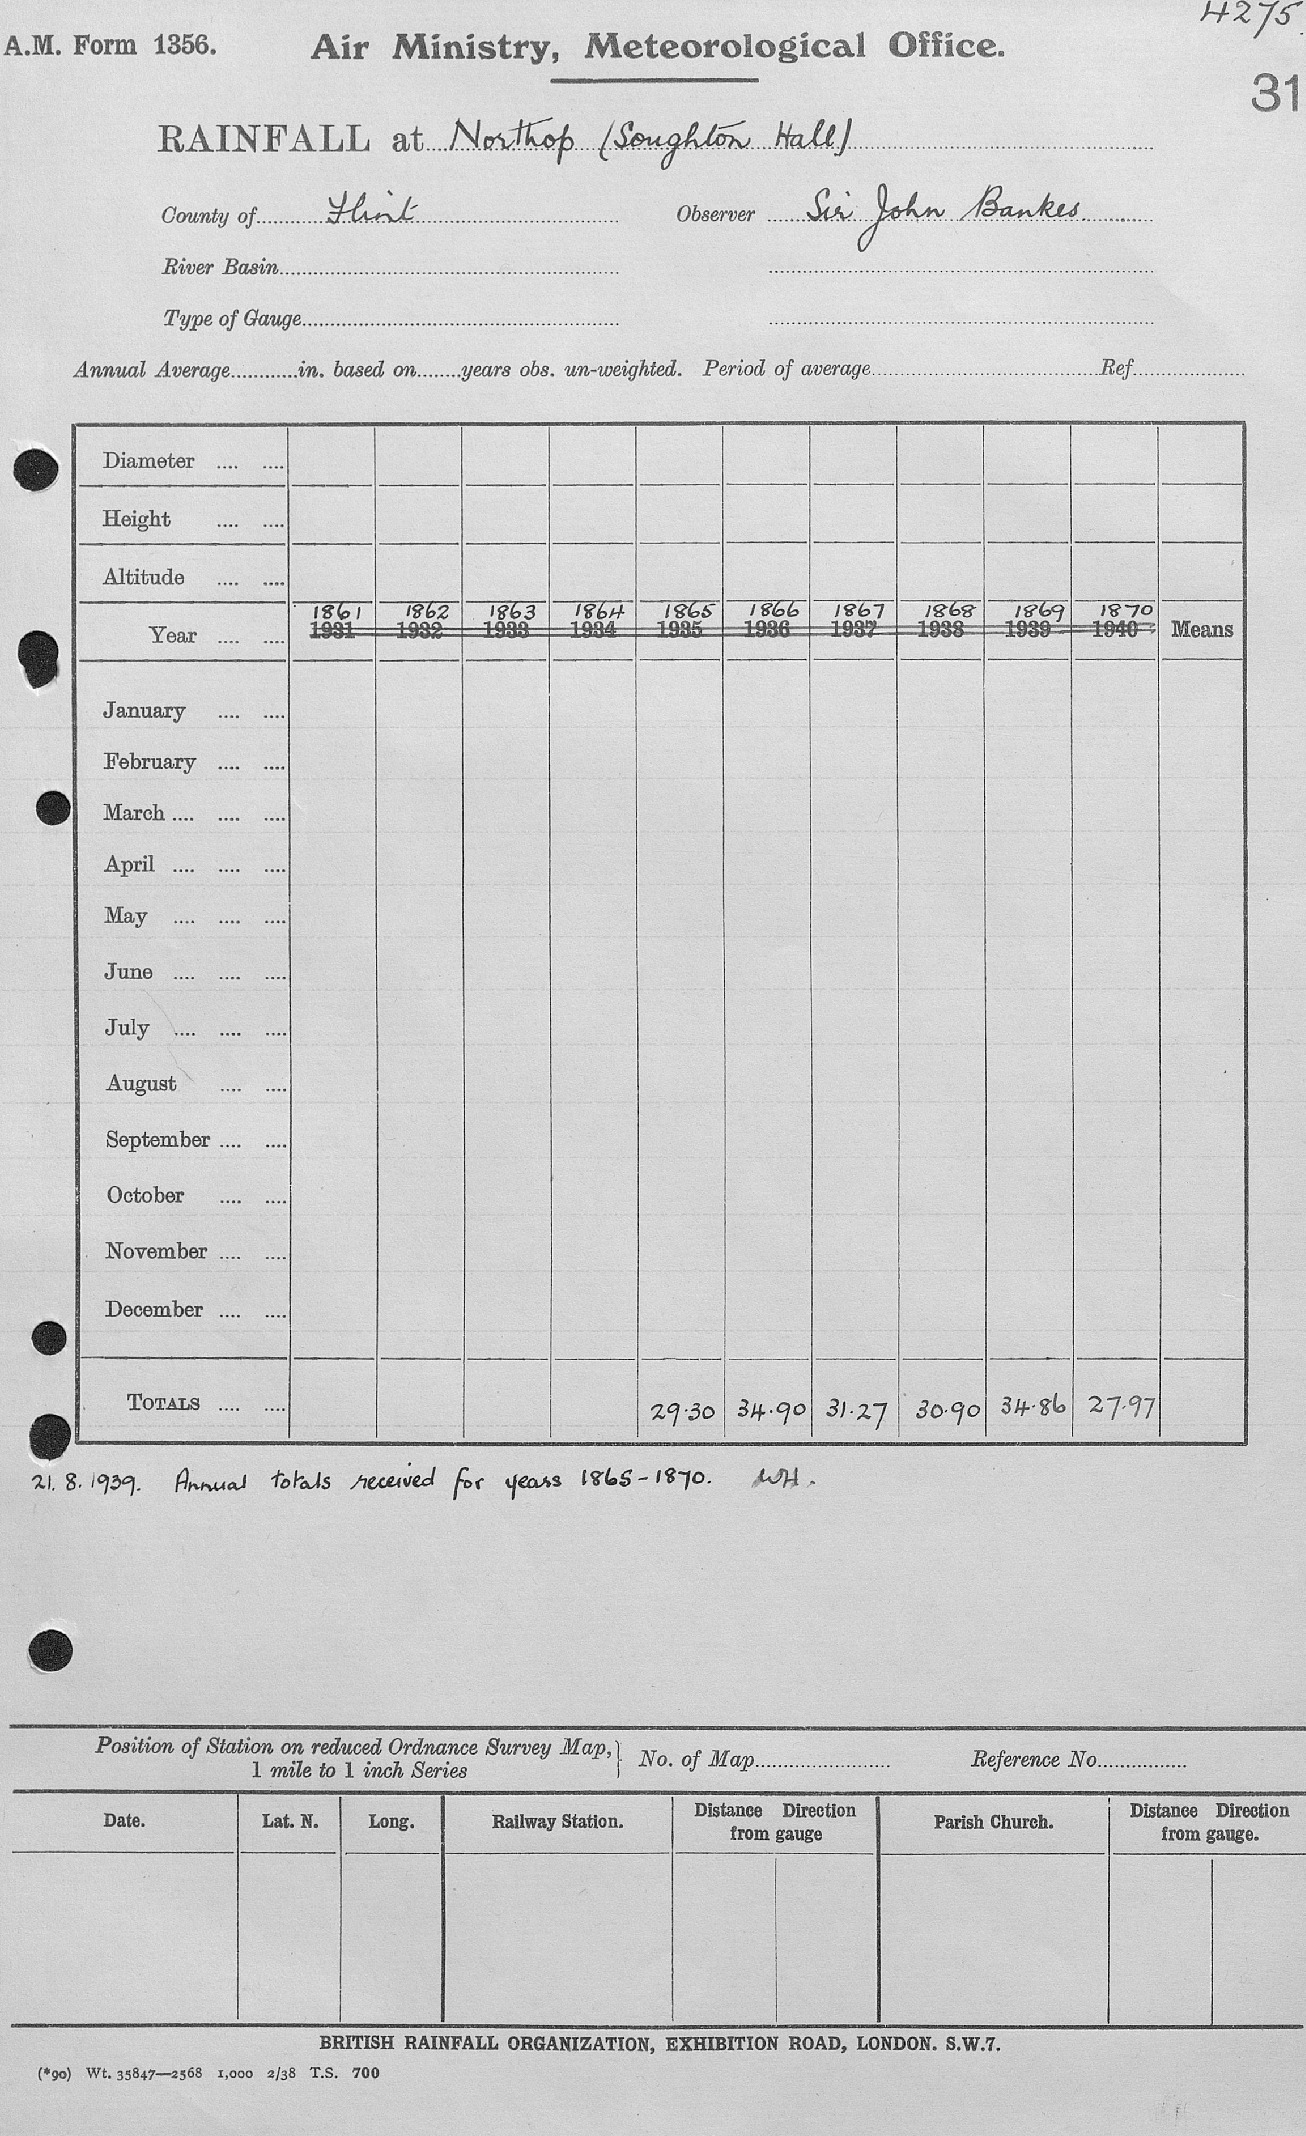 4275.
A.M. Form 1356.
Air Ministry, Meteorological Office.
31
RAINFALL at Northop (Soughton Hall)
County of Flint Observer Sir John Bankes
River Basin
Type of Gauge
Annual Average............in. based on........years obs. un-weighted. Period of average Ref.
Diameter .... ....
Height .... ....
Altitude .... ....
1861 1862 1863 1864 1865 1866 1867 1868 1869 1870
Year .... .... 1931 1932 1933 1934 1935 1936 1937 1938 1939 1940 Means
January .... ....
February .... ....
March .... .... ....
April .... .... ....
May .... .... ....
June .... .... ....
July .... .... ....
August .... ....
September .... ....
October .... ....
November .... ....
December .... ....
TOTALS .... .... 29.30 34.90 31.27 30.90 34.86 27.97
21.8.1939. Annual totals received for years 1865-1870. WH.
Position of Station on reduced Ordnance Survey Map,} No. of Map Reference No.
1 mile to 1 inch Series
Date. Lat. N. Long. Railway Station. Distance Direction from gauge Parish Church. Distance Direction from gauge.
BRITISH RAINFALL ORGANIZATION, EXHIBITION ROAD, LONDON. S.W.7.
(*90) Wt. 35847—2568 1,000 2/38 T.S. 700